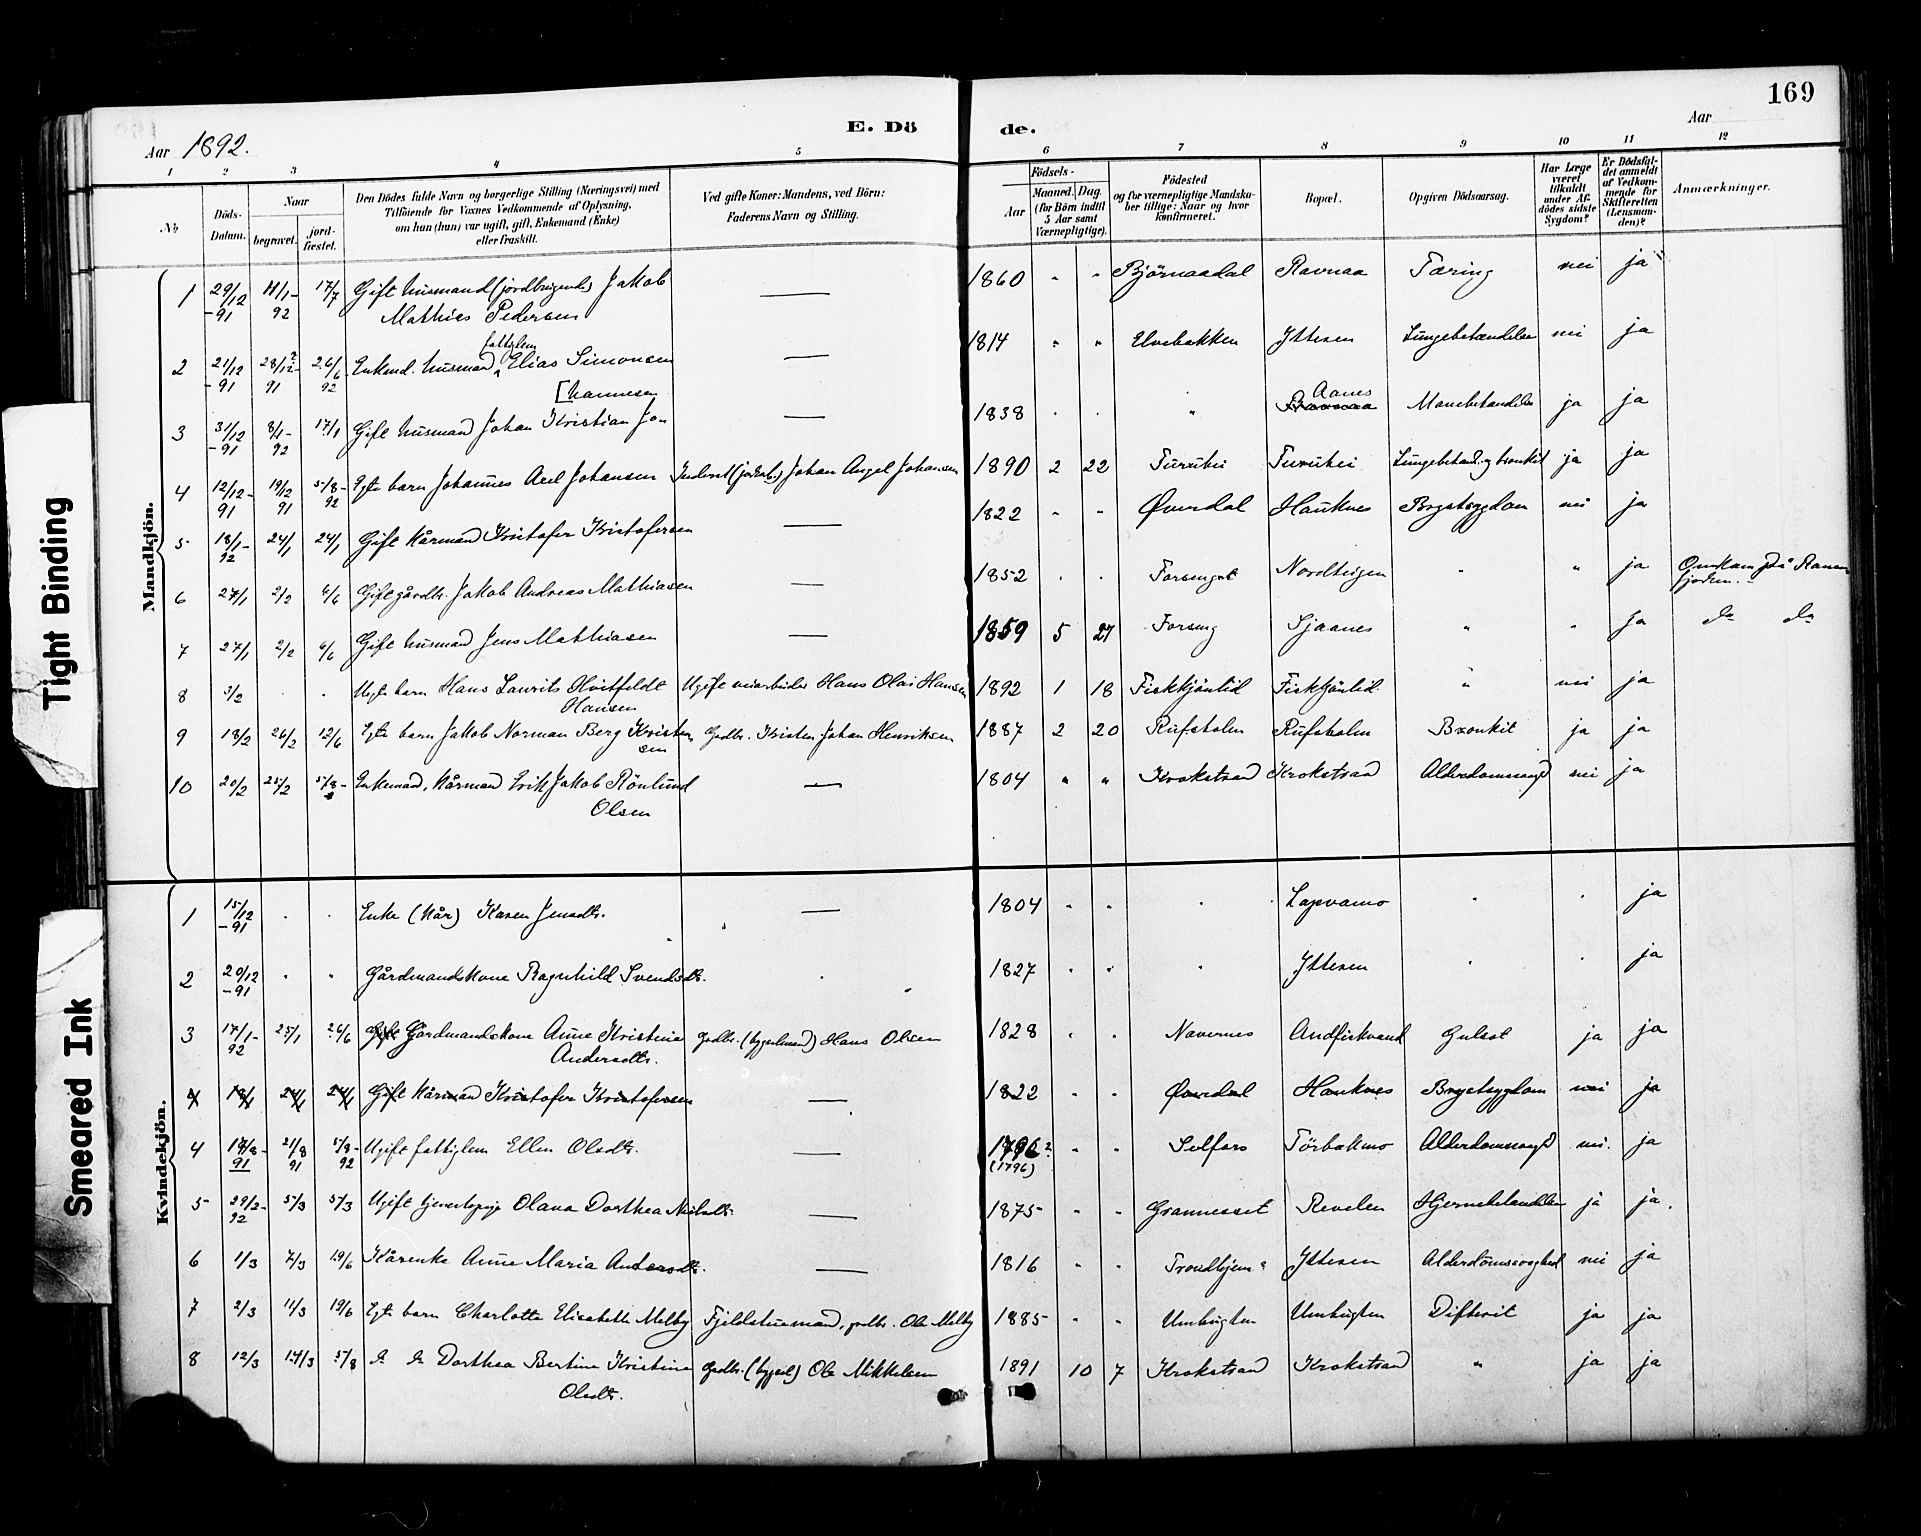 169
E. Dö de.
Aar 1892. Aar
1 2 3 4 5 6 7 8 9 10 11 12
№ Döds-Datum. Naar begravet. jord-fæstet. Den Dödes fulde Navn og borgerlige Stilling (Næringsvei) med Tilföiende for Voxnes Vedkommende af Oplysning, om han (hun) var ugift, gift, Enkemand (Enke) eller fraskilt. Ved gifte Koner: Mandens, ved Börn: Faderens Navn og Stilling. Födsels- Aar Maaned. Dag. (for Börn indtil 5 Aar samt Værnepligtige). Födested og for værnepligtige Mandska-ber tillige: Naar og hvor konfirmeret. Bopæl. Opgiven Dödsaarsag. Har Læge været tilkaldt under Af-dödes sidste Sygdom? Er Dödsfal-det anmeldt af Vedkom-mende for Skifteretten (Lensman-den)? Anmærkninger.
Mandkjön.
1 29/12 -91 11/1- 92 17/7 Gift husmand (jordbrugende) Jakob Mathias Pedersen — 1860 " " Björnaadal Ravnaa Tæring nei ja
2 21/12 -91 28/12- 91 26/6 92 Enkemd. husmand, fattiglem Elias Simonsen — 1814 " " Elvebakken Ytteren Lungebetændelse nei ja
3 31/12 -91 8/1- 92 17/1 Gift husmand Johan Kristian Jo[hannesen — 1838 " " " Ravnaa Aanes Mavebetændelse ja ja
4 12/12- 91 19/12 91 5/8- 92 Egte barn Johannes Axel Johansen Inderst (jordarb.) Johan Angel Johansen 1890 2 22 Furuhei Furuhei Lungebetænd. og bronkit ja ja
5 18/1- 92 24/1 24/1 Gift kårmand Kristofer Kristofersen — 1822 " " Øverdal Hauknes Brystsygdom nei ja
6 27/1 2/2 6/6 Gift gårdbr. Jakob Andreas Mathiasen — 1852 " " Forsenget Nordtvigen " " ja Omkom på Ranenfjorden.
7 27/1 2/2 6/6 Gift husmand Jens Mathiasen — 1859 5 27 Forseng Sjaanes " " ja do do
8 3/2 " " Uegte barn Hans Laurits Hvitfeldt Hansen Ugift veiarbeider Hans Olai Hansen 1892 1 18 Fiskkjönlid Fiskkjönlid " nei ja
9 18/2 26/2 12/6 Egte barn Jakob Norman Berg Kristensen Gårdbr. Kristen Johan Henriksen 1887 2 20 Rufsholm Rufsholm Bronkit ja ja
10 20/2 25/2 5/8- Enkemand, kårmand Erik Jakob Rönlund Olsen — 1804 " " Krokstrand Krokstrand Alderdomssvagh. nei ja
Kvindekjön.
1 15/12 -91 " " Enke (kår) Karen Jensdtr. — 1804 " " " Lapvamo " " ja
2 20/12 -91 " " Gårdmandskone Ragnhild Svendsdtr. " 1827 " " " Ytteren " " ja
3 17/1- 92 25/1 26/6 Gift Gårdmandskone Anne Kristine Andersdtr. Gårdbr. (bygselmand) Hans Olsen 1828 " " Navernes Andfiskvand Gulsot ja ja
4 18/1 24/1 24/1 Gift kårmand Kristofer Kristofersen — 1822 " " Øverdal Hauknes Brystsygdom nei ja
4 17/8- 91 21/8 91 5/8- 92 Ugift fattiglem Ellen Olsdtr. — 1796? (1796) " " Selfors Törbakmo Alderdomssvagh. nei. ja
5 29/2- 92 5/3 5/3 Ugift tjenestepige Olava Dorthea Nilsdtr. — 1875 " " Grannesset Revelen Hjernebetændelse ja ja.
6 1/3 7/3 19/6 Kårenke Anne Maria Andersdtr. — 1816 " " Trondhjem? Ytteren Alderdomssvaghed nei ja
7 2/3 11/3 19/6 Egte barn Charlotte Elisabeth Melby Fjeldstuemand, gårdbr. Ole Melby 1885 " " Umbugten Umbugten Difterit ja ja
8 12/3 14/3 5/8 do do Dorthea Bertine Kristine Olsdtr. Gårdbr. (bygsel) Ole Mikkelsen 1891 10 7 Krokstrand Krokstrand " ja ja
Tight Binding
Smeared Ink